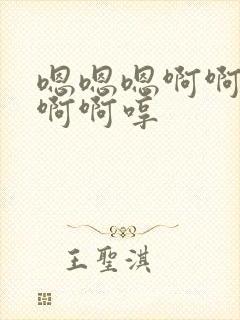 嗯嗯嗯啊啊
啊啊哼
王聖淇